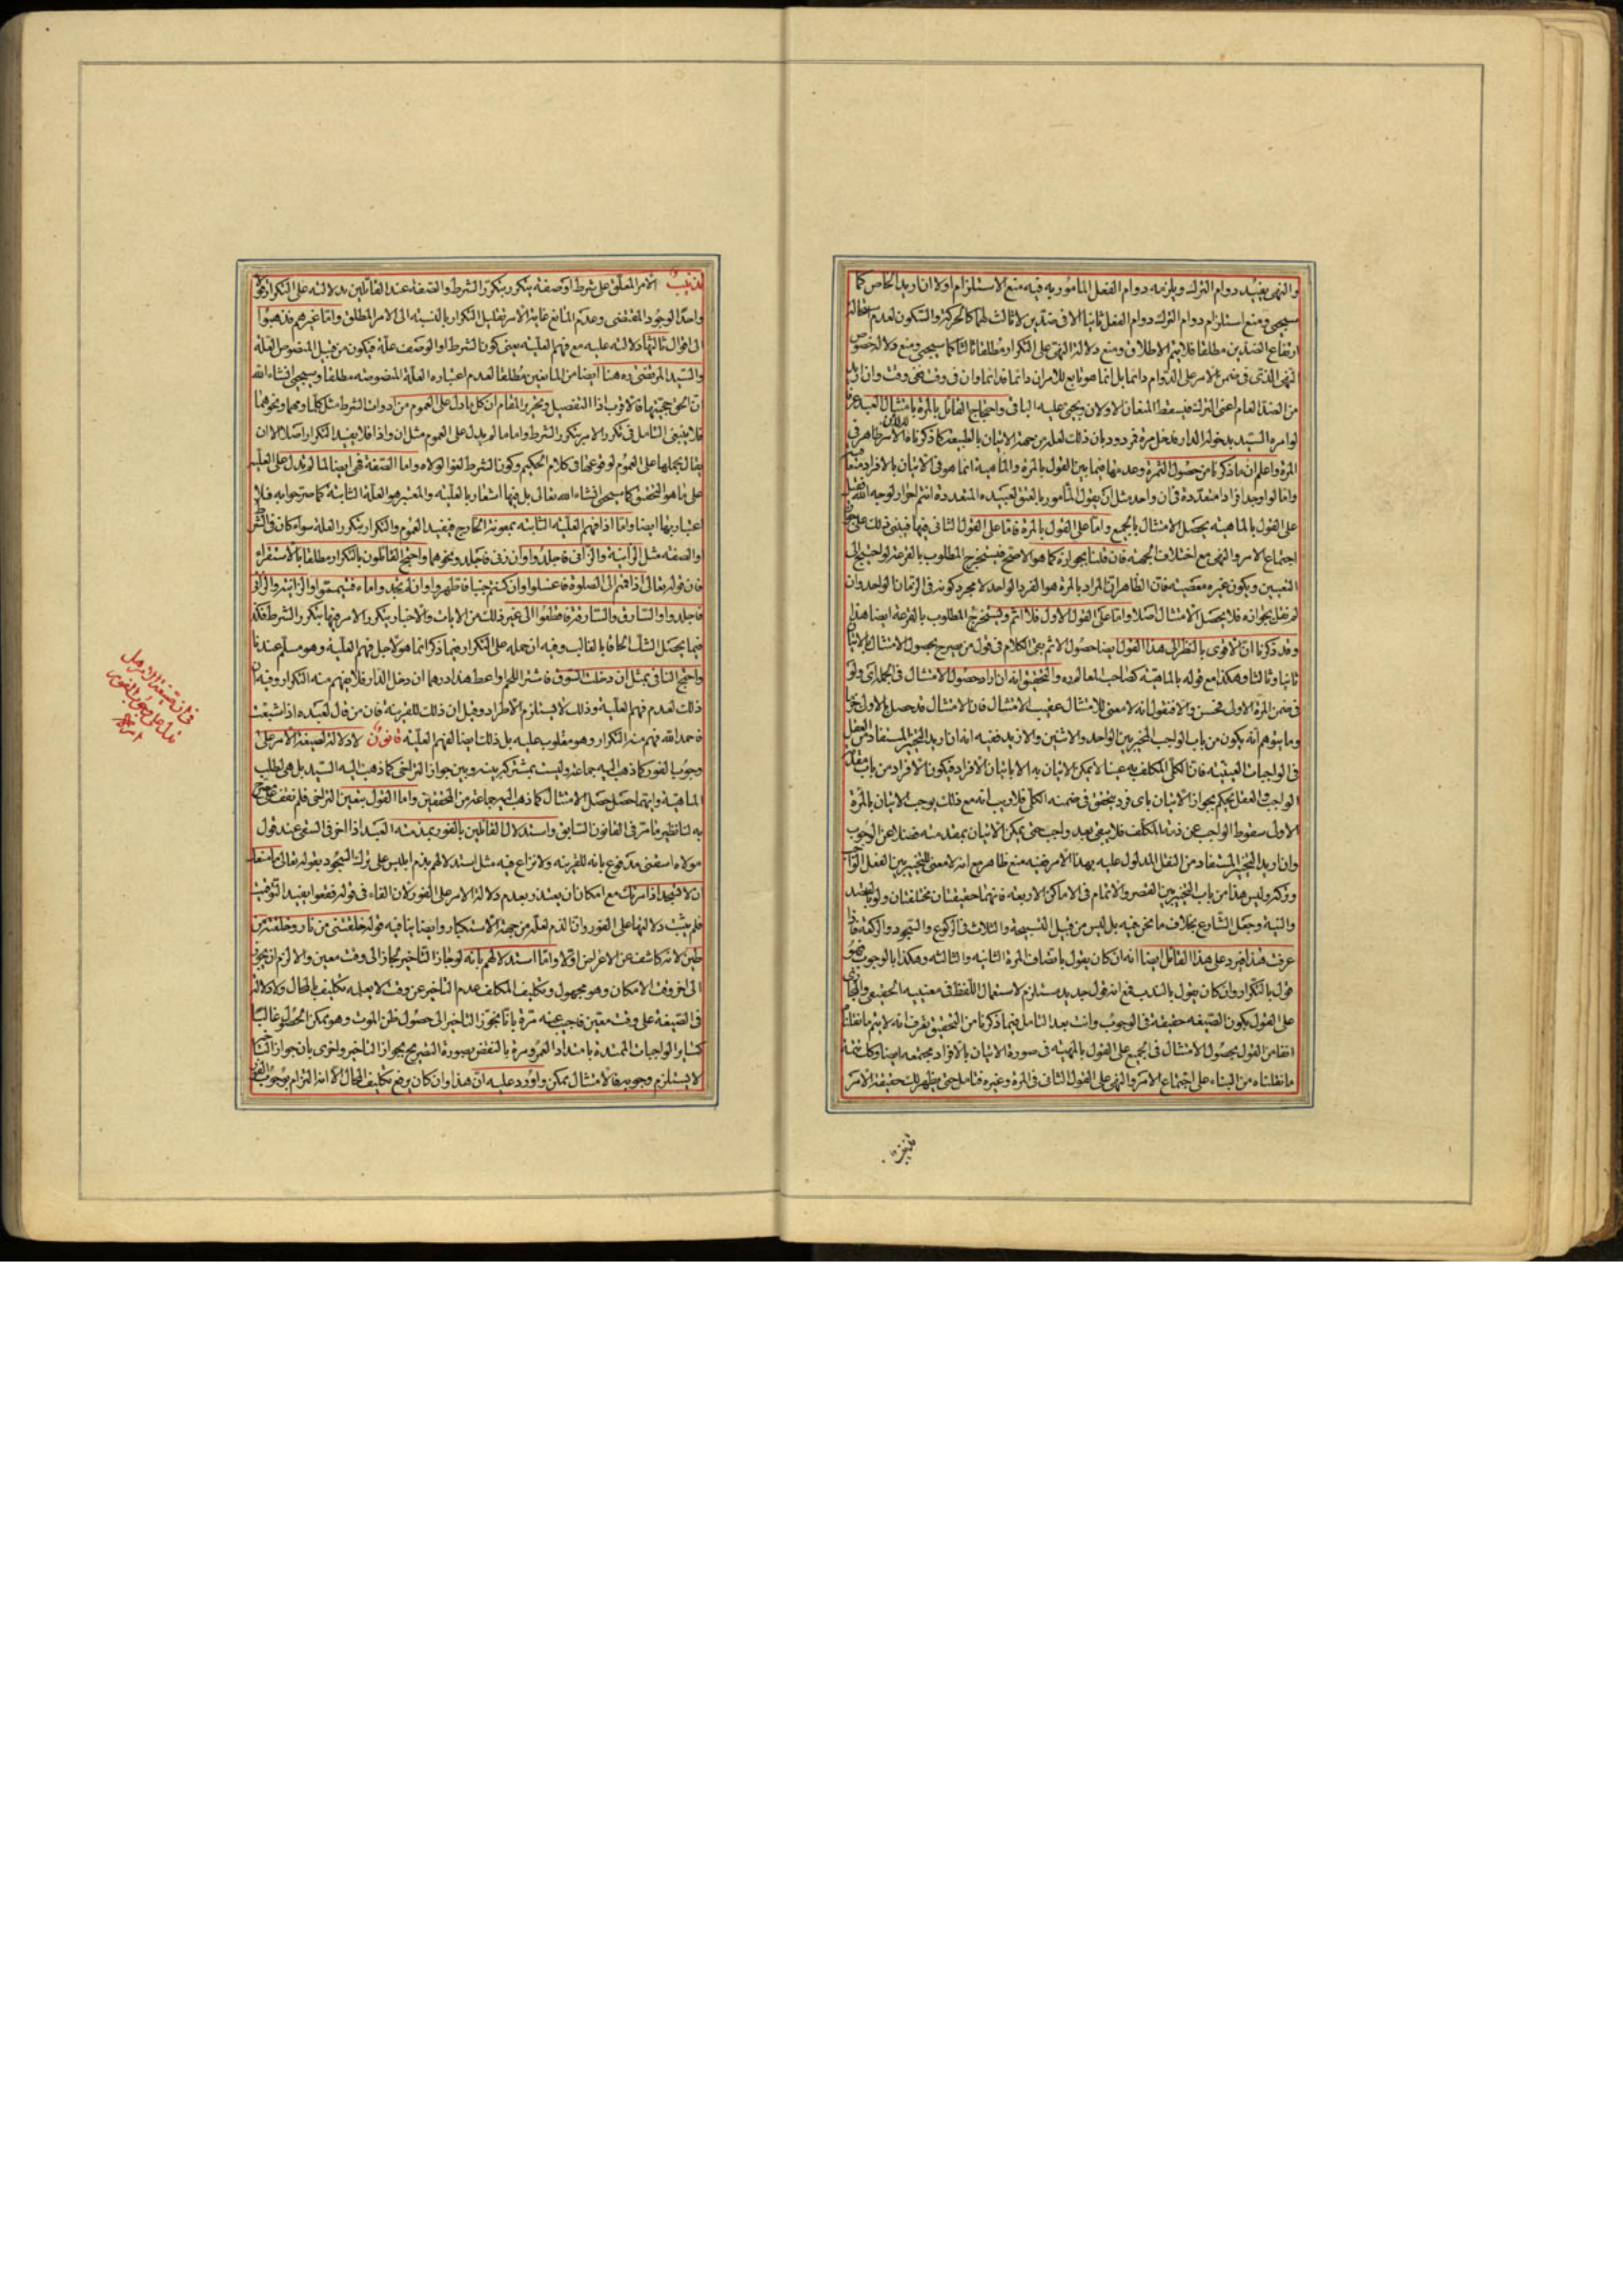 والنهى يفيد دوام الترك ويلزمه دوام الفعل المأمور به فيه منع الاستلزام اولا ان اريد الخاص كما
سيجئ ومنع استلزام دوام الترك دوام الفعل ثانيا الا فى ضدين لا ثالث لهما كالحركة والسكون لعدم استحالة
ارتفاع الضدين مطلقا فلا يتم الاطلاق ومنع دلالة النهى على التكرار مطلقا ثالثا كما سيجئ ومنع دلالة خصوص
النهى الذى فى ضمن الامر على الدوام دائما بل انما هو تابع للامر ان دائما فدائما وان فى وقت ففى وقت وان اريد
من الضد العام اعنى الترك فيسقط المنعان الاولان ويجئ عليه الباقى واحتجاج القائل بالمرة بامتثال العبد عرفا
لو امره السيد بدخول الدار فدخل مرة مردود بان ذلك لعله من جهة الاتيان بالطبيعة كما ذكرنا فالامر ظاهر فى
المرة واعلم ان ما ذكرنا من حصول الثمرة وعدمها فيما بين القول بالمرة والماهية انما هو فى الاتيان بالافراد متعاقبة
واما لو اوجد افرادا متعددة فى ان واحد مثل ان يقول المأمور بالعتق لعبيده المتعددة انتم احرار لوجه الله فعلى
على القول بالماهية يحصل الامتثال بالجميع واما على القول بالمرة فاما على القول الثانى فيها فيبنى ذلك على جواز
اجتماع الامر والنهى مع اختلاف الجهة فان قلنا بجوازه كما هو الاصح فيستخرج المطلوب بالقرعة لو احتيج الى
التعيين ويكون غيره معصية فان الظاهر ان المراد بالمرة هو الفرد الواحد لا مجرد كونه فى الزمان الواحد وان
لم نقل بجوازه فلا يحصل الامتثال اصلا واما على القول الاول فلا اثم ويستخرج المطلوب بالقرعة ايضا هذا
وقد ذكرنا ان الاقوى بالنظر الى هذا القول ايضا حصول الاثم بقى الكلام فى قول من صرح بحصول الامتثال بالاتيان
ثانيا وثالثا وهكذا مع قوله بالماهية كصاحب المعالم ره والتحقيق انه ان اراد حصول الامتثال فى الجملة اى ولو
فى ضمن المرة الاولى فحسن والا فنقول انه لا معنى للامتثال عقيب الامتثال فان الامتثال قد حصل بالاول جزما
وما يتوهم انه يكون من باب الواجب المخير بين الواحد والاثنين والازيد ففيه انه ان اريد التخيير المستفاد من العقل
فى الواجبات العينية فان الكلى المكلف به عينا لا يمكن الاتيان به الا باتيان الافراد فيكون الافراد من باب مقدمة
الواجب والعقل يحكم بجواز الاتيان باى فرد يتحقق فى ضمنه الكلى فلا ريب انه مع ذلك يوجب الاتيان بالمرة
الاولى سقوط الواجب عن ذمة المكلف فلا يبقى بعد واجب حتى يمكن الاتيان بمقدمته فضلا عن الوجوب
وان اريد التخيير المستفاد من النقل المدلول عليه بهذا الامر ففيه منع ظاهر مع انه لا معنى للتخيير بين الفعل الواحد
وتركه وليس هذا من باب التخيير بين القصر والاتمام فى الاماكن الاربعة فانهما حقيقتان مختلفتان ولو بالقصد
والنية وجعل الشارع بخلاف ما نحن فيه بل ليس من قبيل التسبيحة والثلاث فى الركوع والسجود والركعة فاذا
عرفت هذا فيرد على هذا القائل ايضا انه ان كان يقول باتصاف المرة الثانية والثالثة وهكذا بالوجوب فهو
قول بالتكرار وان كان يقول بالندب فمع انه قول جديد مستلزم لاستعمال اللفظ فى معنييه الحقيقى والمجازى
على القول بكون الصيغة حقيقة فى الوجوب وانت بعد التامل فيما ذكرنا من التحقيق تعرف انه لا يتم ما نقلنا
انفا من القول بحصول الامتثال فى الجميع على القول بالمهية فى صورة الاتيان بالافراد مجتمعة ايضا وكذا تتمة
ما نقلناه من البناء على اجتماع الامر والنهى على القول الثانى فى المرة وغيره فتامل حتى يظهر لك حقيقة الامر
تذنيب الامر المعلق على شرط او صفة يتكرر بتكرر الشرط والصفة عند القائلين بدلالته على التكرار قولا
واحدا لوجود المقتضى وعدم المانع غاية الامر تقليل التكرار بالنسبة الى الامر المطلق واما غيرهم فذهبوا
الى اقوال ثالثها دلالته عليه مع فهم العلية يعنى كون الشرط او الوصف علة فيكون من قبيل المنصوص العلة
والسيد المرتضى ره هنا ايضا من المانعين مطلقا لعدم اعتباره العلة المنصوصة مطلقا وسيجئ انشاء الله
ان الحق حجيتها فالاقرب اذا التفصيل وتحرير المقام ان كل ما دل على العموم من ادوات الشرط مثل كلما ومهما ونحوهما
فلا ينبغى التامل فى تكرر الامر بتكرر الشرط واما ما لم يدل على العموم مثل ان واذا فلا يفيد التكرار اصلا الا ان
يقال بحملها على العموم لوقوعها فى كلام الحكيم وكون الشرط لغوا لولاه واما الصفة فهى ايضا لما لم تدل على العلية
على ما هو التحقيق كما سيجئ انشاء الله تعالى بل فيها اشعار بالعلية والمعتبر هو العلة الثابتة كما صرحوا به فلا
اعتبار بها ايضا واما اذا فهم العلية الثابتة بمعونة الخارج فيفيد العموم والتكرار بتكرر العلة سواء كان فى الشرط
والصفة مثل الزانية والزانى فاجلدوا وان زنى فاجلد ونحوهما واحتج القائلون بالتكرار مطلقا بالاستقراء
فان قوله تعالى اذا قمتم الى الصلوة فاغسلوا وان كنتم جنبا فاطهروا وان لم تجدوا ماء فتيمموا والزانية والزانى
فاجلدوا والسارق والسارقة فاقطعوا الى غير ذلك من الايات والاخبار يتكرر الامر فيها بتكرر الشرط فكذا
فيما يحصل الشك الحاقا بالغالب وفيه ان حمله على التكرار فيما ذكر انما هو لاجل فهم العلية وهو مسلم عندنا
واحتج النافى بمثل ان دخلت السوق فاشتر اللحم او اعط هذا درهما ان دخل الدار فلا يفهم منه التكرار وفيه ان
ذلك لعدم فهم العلية وذلك لا يستلزم الاطراد وقيل ان ذلك للقرينة فان من قال لعبده اذا شبعت
فاحمد الله فهم منه التكرار وهو مقلوب عليه بل ذلك ايضا لفهم العلية قانون لا دلالة لصيغة الامر على
وجوب الفور كما ذهب اليه جماعة وليست بمشتركة بينه وبين جواز التراخى كما ذهب اليه السيد بل هى لطلب
الماهية وايهما حصل حصل الامتثال كما ذهب اليه جماعة من المحققين واما القول بتعين التراخى فلم نقف على مصرح
به لنا نظير ما مر فى القانون السابق واستدلال القائلين بالفور بمذمة العبد اذا اخر فى السقى عند قول
مولاه اسقنى مدفوع بانه للقرينة ولا نزاع فيه مثل استدلالهم بذم ابليس على ترك السجود بقوله تعالى ما منعك
ان لا تسجد اذ امرتك مع امكان ان يعتذر بعدم دلالة الامر على الفور لان الفاء فى قوله فقعوا يفيد التوقيت
فلم يثبت دلالتها على الفور وان الذم لعله من جهة الاستكبار وايضا ينافيه قوله خلقتنى من نار وخلقته من
طين لانه كاشف عن الاعراض اولا واما استدلالهم بانه لو جاز التاخير لجاز الى وقت معين والا لزم ان يجوز
الى اخر وقت الامكان وهو مجهول وتكليف المكلف بعدم التاخير عن وقت لا يعلمه تكليف بالمحال ولا دلالة
فى الصيغة على وقت معين فاجيب عنه مرة بانا نجوز التاخير الى حصول ظن الموت وهو ممكن الحصول غالبا
كساير الواجبات الممتدة بامتداد العمر ومرة بالنقض بصورة التصريح بجواز التاخير واخرى بان جواز التاخير
لا يستلزم وجوبه فالامتثال ممكن واورد عليه ان هذا وان كان يرفع تكليف المحال الا انه التزام بوجوب الفور